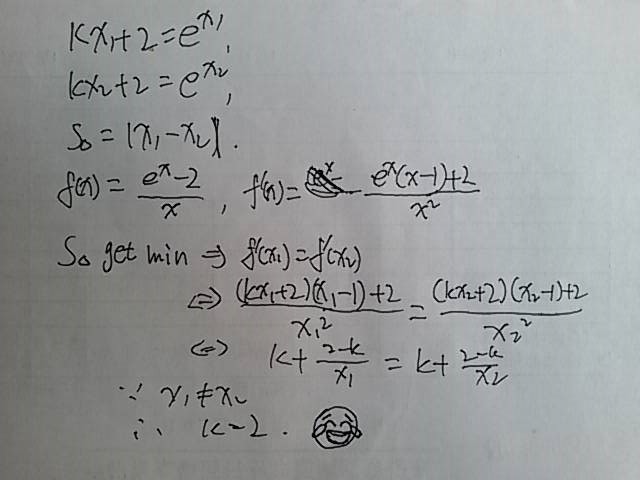 kx₁+2=e^x₁,
kx₂+2=e^x₂,
S₀=|x₁-x₂|.
f(x)=(e^x-2)/x, f'(x)=(e^x(x-1)+2)/x²
S₀ get min ⇒ f'(x₁)=f'(x₂)
⇔ ((kx₁+2)(x₁-1)+2)/x₁² = ((kx₂+2)(x₂-1)+2)/x₂²
⇔ k+(2-k)/x₁=k+(2-k)/x₂
∵ x₁≠x₂
∴ k=2.